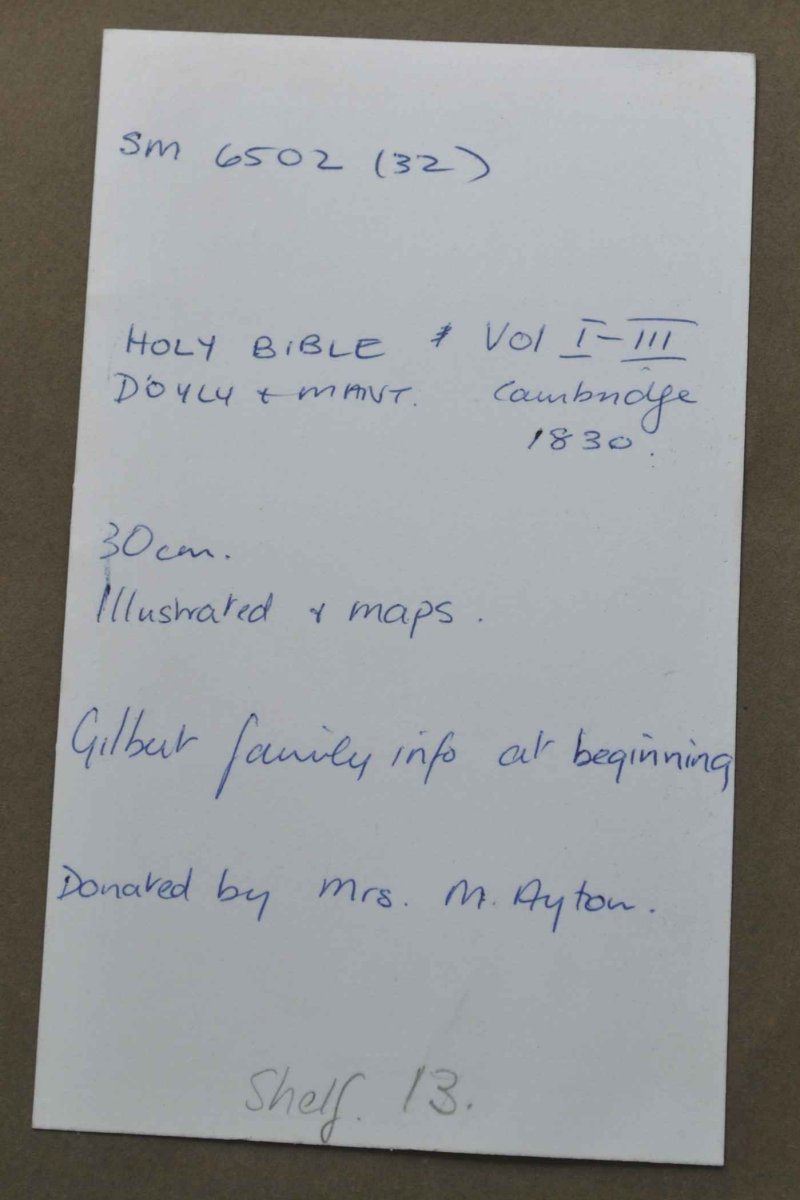 SM 6502 (32)
HOLY BIBLE Vol I-III
D'OYLY & MANT. Cambridge
1830.
30cm.
Illustrated & maps.
Gilbert family info at beginning
Donated by Mrs. M. Ayton.
Shelf. 13.